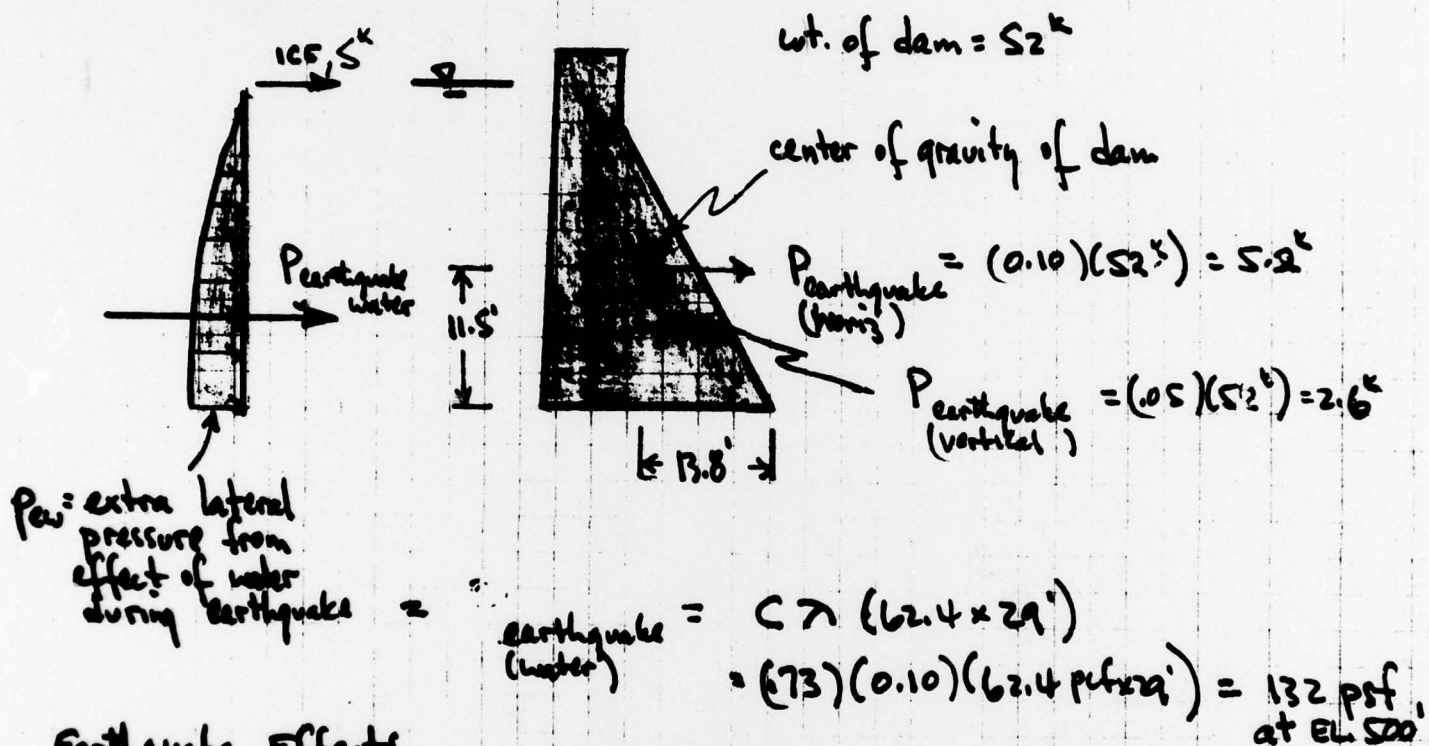 ICE, 5ᵏ
wt. of dam = 52ᵏ
center of gravity of dam
P earthquake water
11.5'
P earthquake (horiz) = (0.10)(52ᵏ) = 5.2ᵏ
P earthquake (vertical) = (.05)(52ᵏ) = 2.6ᵏ
13.8'
Pew = extra lateral
pressure from
effect of water
during earthquake =
earthquake (water) = C λ (62.4 x 29')
= (.73)(0.10)(62.4 pcf x 29') = 132 psf,
at EL. 500'
Earthquake Effects